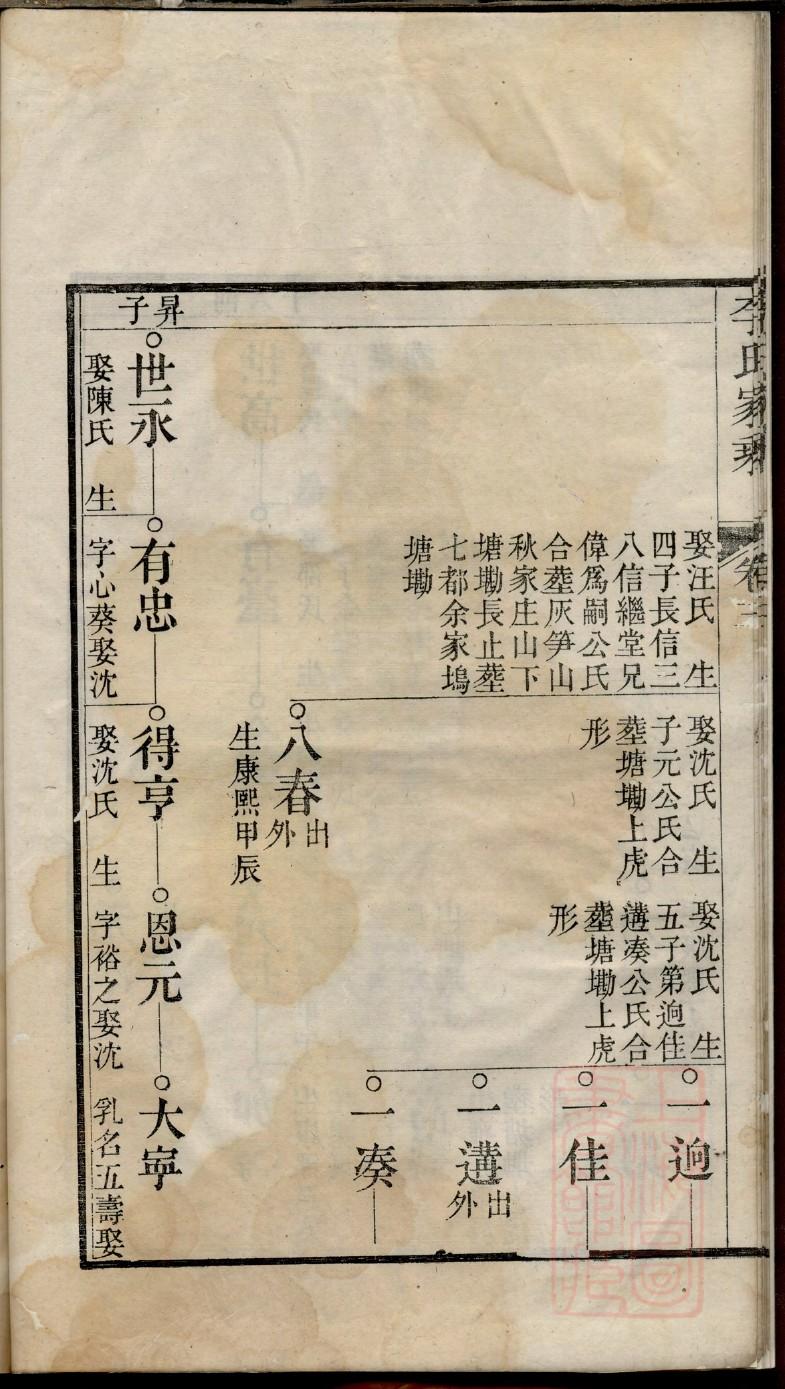 李氏家乘
卷
娶汪氏　生
四子長信三
八信繼堂兄
偉爲嗣公氏
合塟灰笋山
秋家庄山下
塘墈長止塟
七都余家塢
塘墈
娶沈氏　生
子元公氏合
塟塘墈上虎
形
八春
出外
生康熙甲辰
娶沈氏　生
五子第逈佳
遘凑公氏合
塟塘墈上虎
形
一逈
一佳
一遘
出外
一凑
昇子
世永
娶陳氏　生
有忠
字心葵娶沈
得亨
娶沈氏　生
恩元
字裕之娶沈
大寧
乳名五壽娶